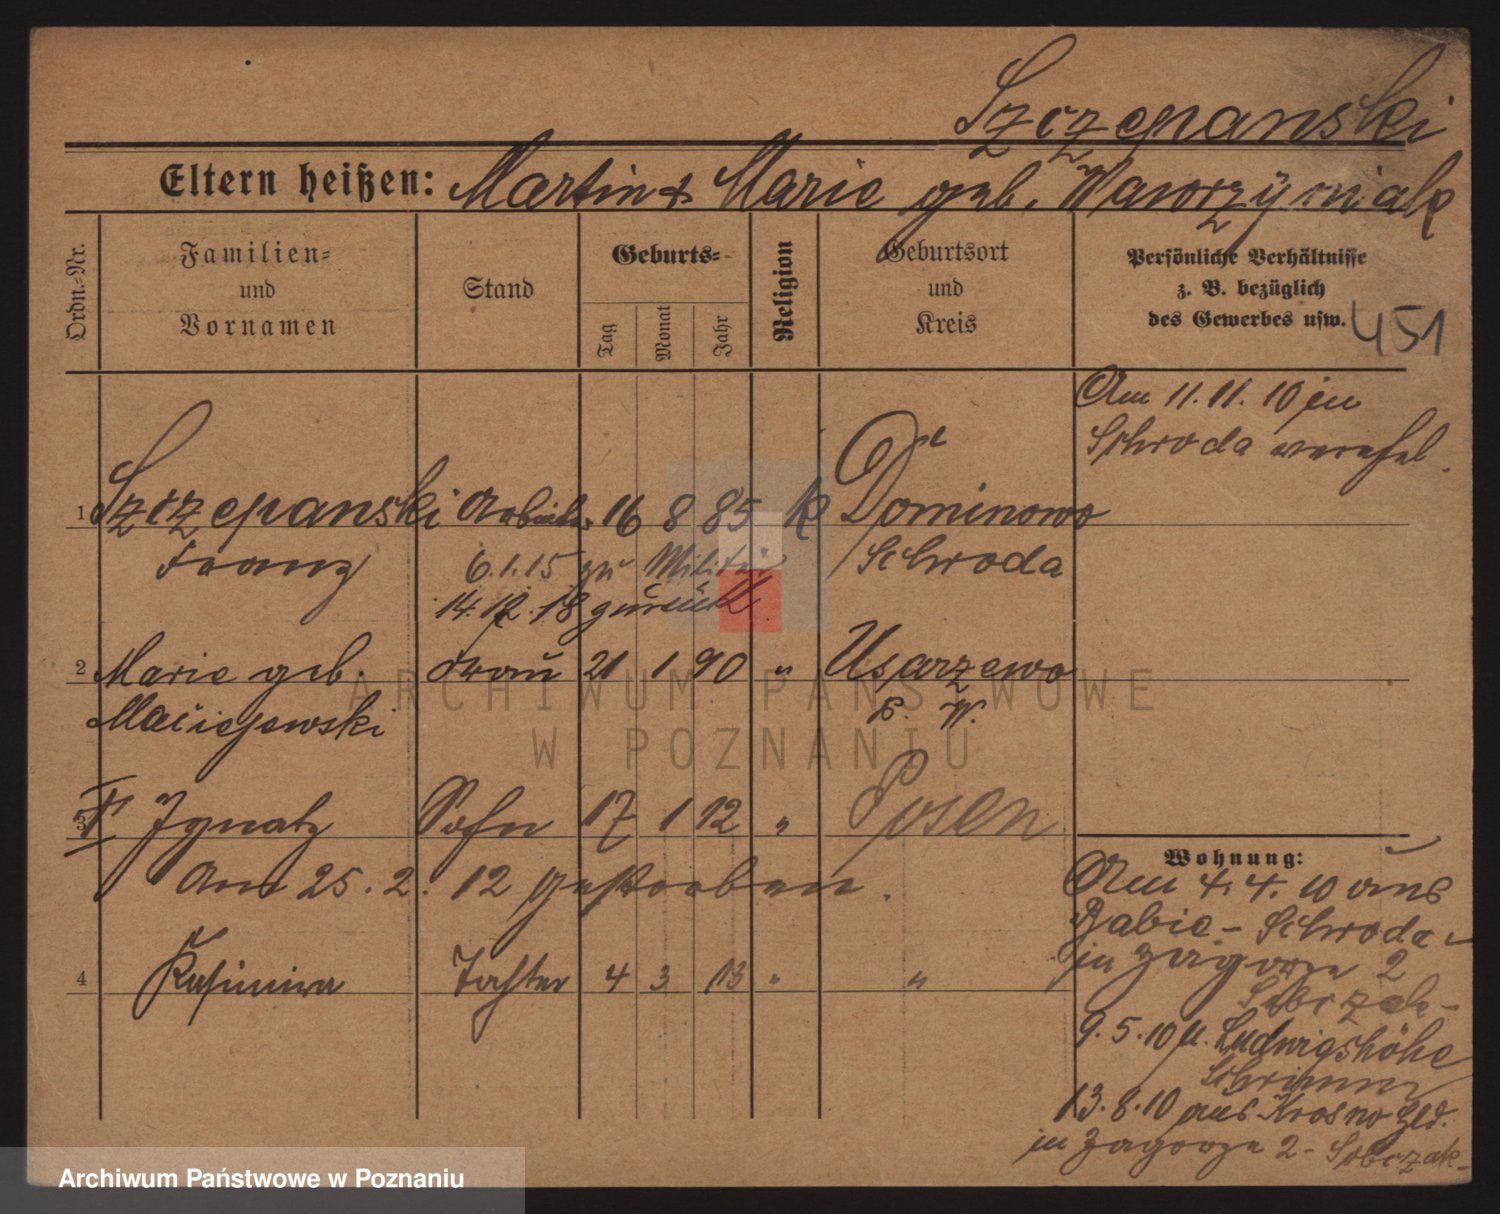 Szczepanski
Eltern heißen: Martin & Marie geb. Wawrzyniak
Ordn.-Nr.
Familien-
und
Vornamen
Stand
Geburts-
Tag
Monat
Jahr
Religion
Geburtsort
und
Kreis
Persönliche Verhältnisse
z. B. bezüglich
des Gewerbes usw.
451
Am 11. 11. 10 in
Schroda verehel.
1 Szczepanski Arbeiter 16 8 85 k Dominowo
Franz 6.1.15 zu Militär Schroda
14.12.18 zurück
2 Marie geb. Frau 21 1 90 " Usarzewo
Maciejewski P. W.
3 Ignatz Sohn 17 1 12 " Posen
Am 25. 2. 12 gestorben.
4 Kasimira Tochter 4 3 13 " "
Wohnung:
Am 4. 4. 10 aus
Babie - Schroda -
in Zagorze 2
Sobczak -
9. 5. 10 n. Ludwigshöhe
Schrimm
13. 8. 10 aus Krosno Hld.
in Zagorze 2 - Sobczak -
ARCHIWUM PAŃSTWOWE
W POZNANIU
Archiwum Państwowe w Poznaniu